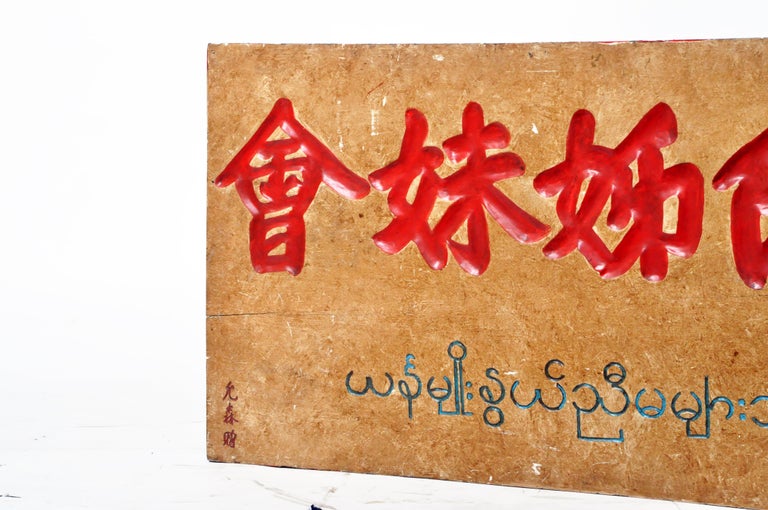 姊妹會
ယန်မျိုးနွယ်ညီမများ
允森贈